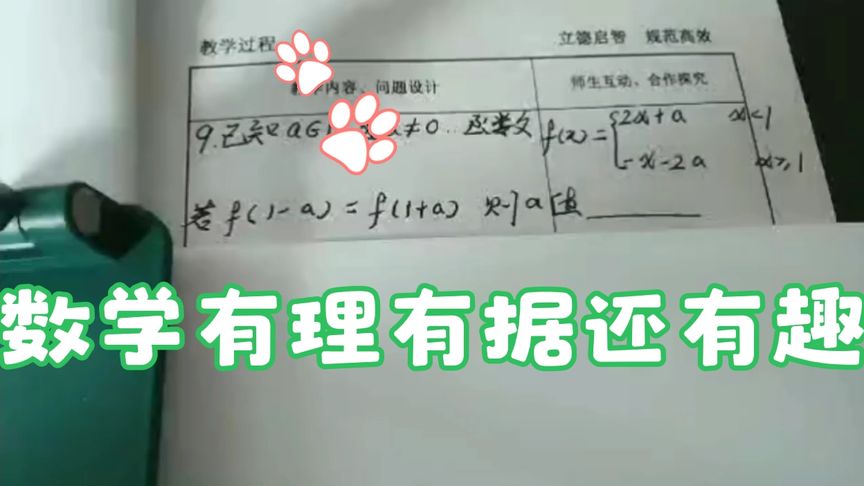 教学过程
立德启智 规范高效
内容、问题设计
师生互动、合作探究
9.已知a∈ a≠0. 函数 f(x)={2x+a x<1
-x-2a x≥1
若f(1-a)=f(1+a) 则a值______
数学有理有据还有趣